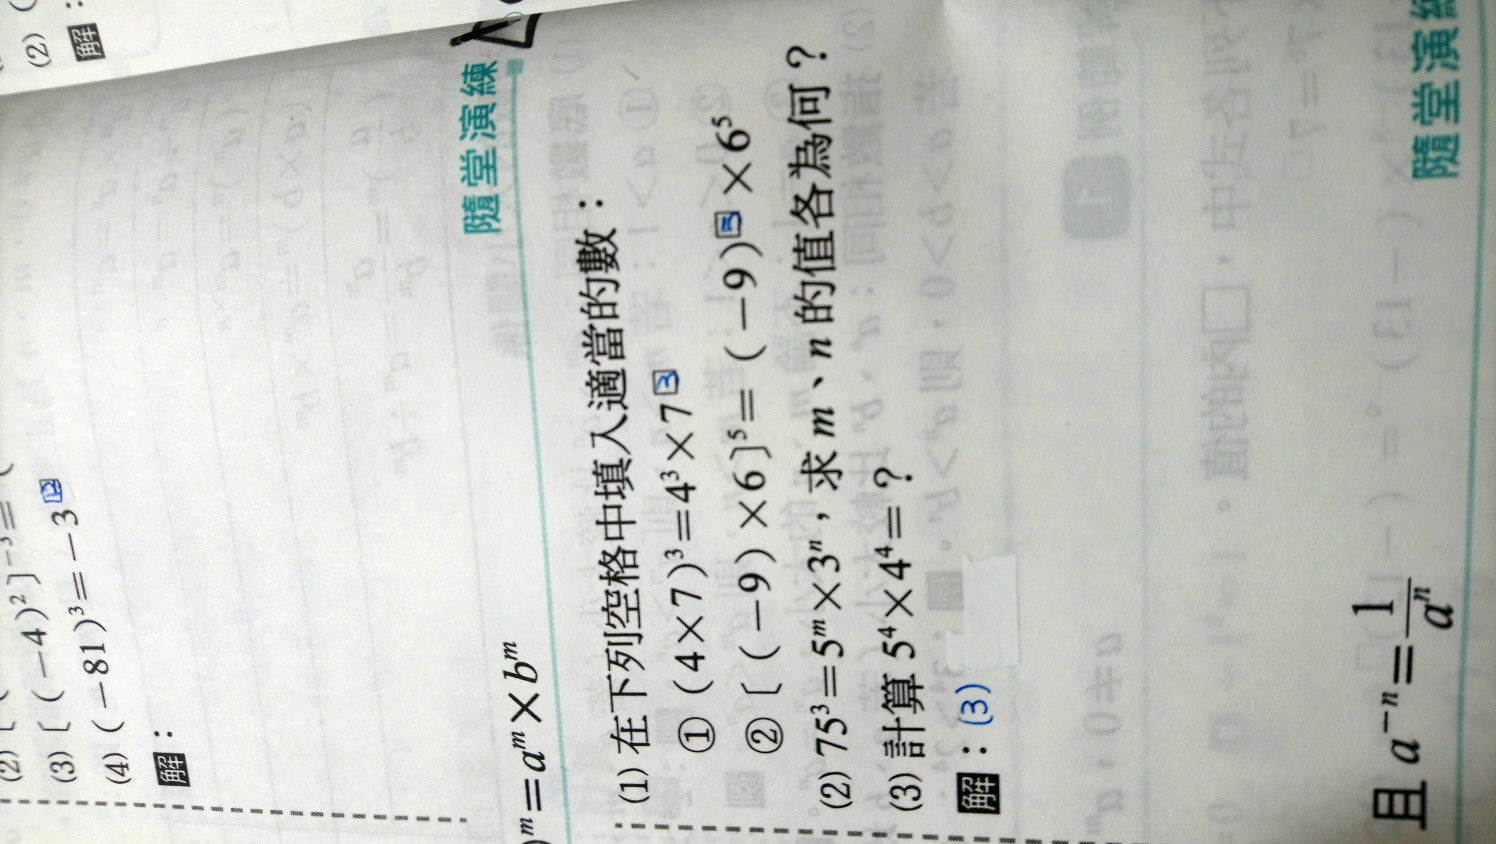 (2)
解：
(2)
(3)〔(－4)²〕⁻³＝
(4)(－81)³＝－3^12
解：
)ᵐ＝aᵐ×bᵐ
隨堂演練
(1)在下列空格中填入適當的數：
①(4×7)³＝4³×7^3
②〔(－9)×6〕⁵＝(－9)^5×6⁵
(2)75³＝5ᵐ×3ⁿ，求m、n的值各為何？
(3)計算5⁴×4⁴＝？
解：(3)
且a⁻ⁿ＝1/aⁿ
隨堂演練